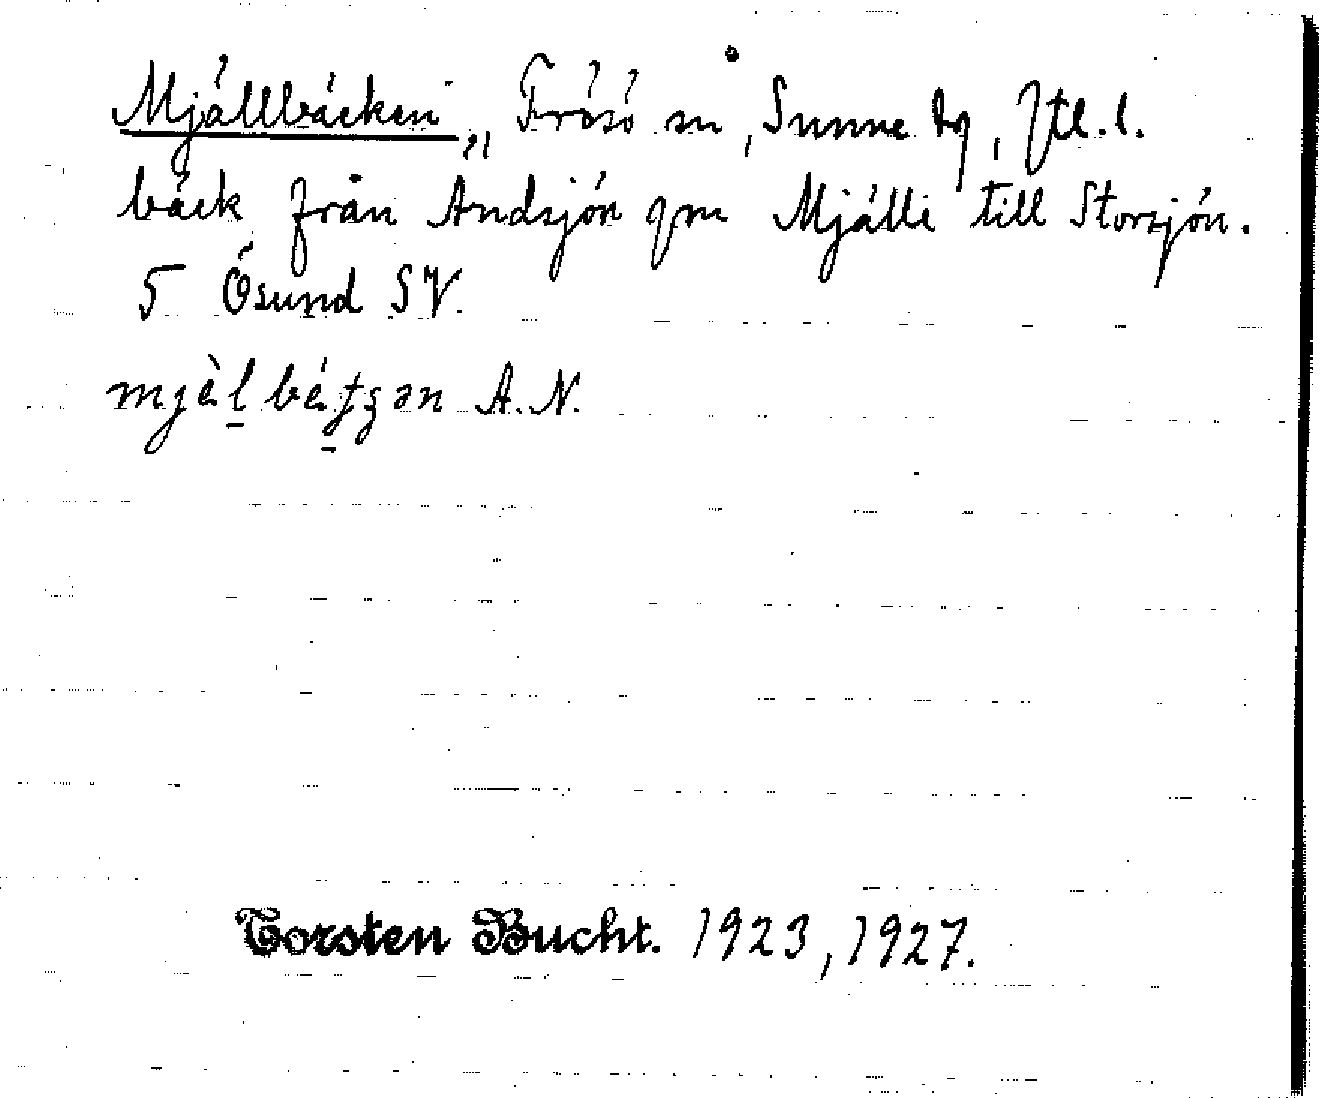 Mjällbäcken, Frösö sn, Sunne tg, Jtl.l.
bäck från Ändsjön gm Mjälle till Storsjön.
5 Ösund SV.
mjèlbétʂən A.N.
Torsten Bucht. 1923, 1927.